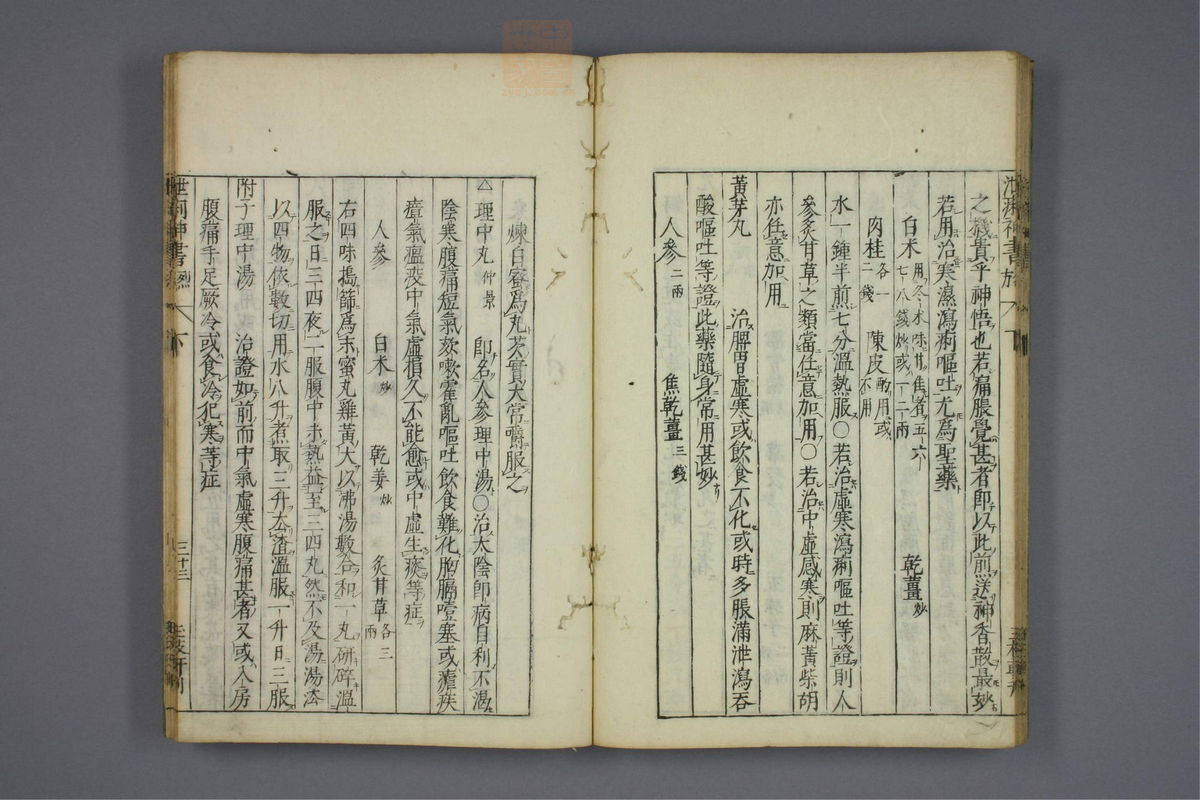 之機貴乎神悟也若痛脹覺甚者即以此煎送神香散最妙
若用治寒濕瀉痢嘔吐尤爲聖藥
白术 用冬术味甘焦者五六七八錢炒或一二兩 乾薑 炒
肉桂 各一二錢 陳皮 酌用或不用
水一鍾半煎七分溫熱服○若治虛寒瀉痢嘔吐等證則人
參炙甘草之類當任意加用○若治中虛感寒則麻黃柴胡
亦任意加用
黃芽丸 治脾胃虛寒或飲食不化或時多脹滿泄瀉吞
酸嘔吐等證此藥隨身常用甚妙
人參 二兩 焦乾薑 三錢
煉白蜜爲丸芡實大常嚼服之
△理中丸 仲景 即名人參理中湯○治太陰即病自利不渴
陰寒腹痛短氣咳嗽霍亂嘔吐飲食難化胸膈噎塞或瘧疾
瘴氣瘟疫中氣虛損久不能愈或中虛生痰等症
人參 白术 炒 乾姜 炒 炙甘草 各三兩
右四味搗篩爲末蜜丸雞黃大以沸湯數合和一丸研碎溫
服之日三四夜二服腹中未熱益至三四丸然不及湯湯法
以四物依數切用水八升煮取三升去渣溫服一升日三服
附子理中湯 治證如前而中氣虛寒腹痛甚者又或入房
腹痛手足厥冷或食冷犯寒等症
三十三